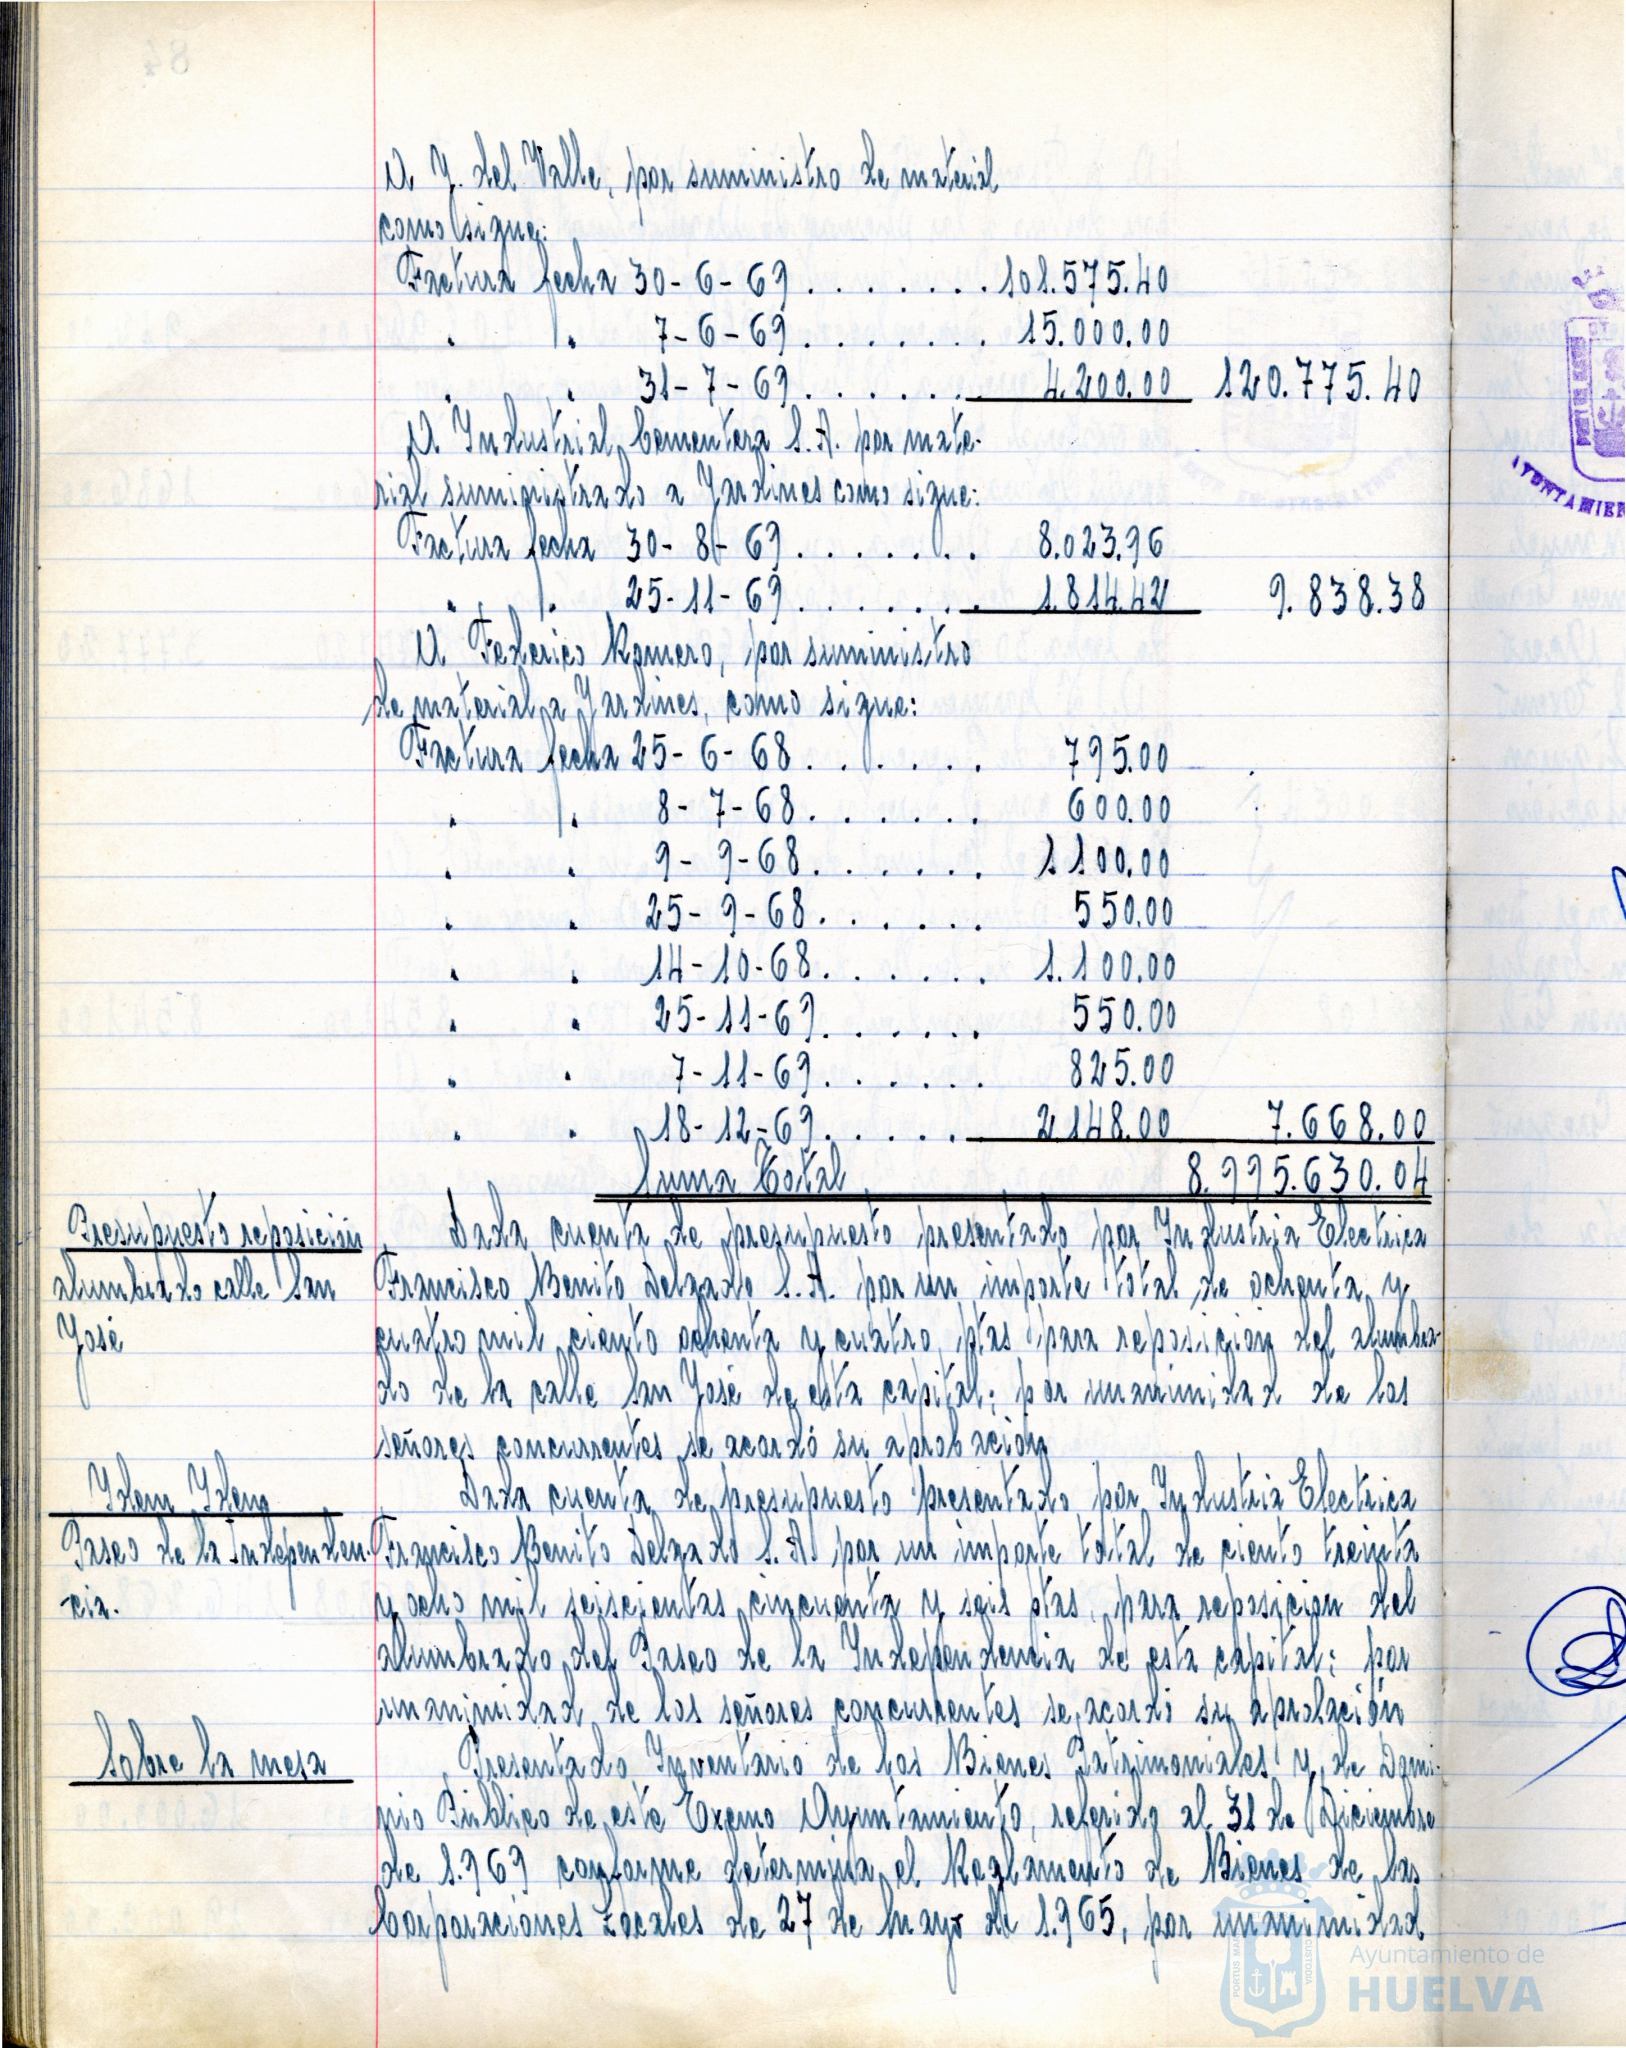 A J. del Valle, por suministro de material
como sigue:
Factura fecha 30-6-69 . . . . . . . 101.575.40
" " 7-6-69 . . . . . . . 15.000.00
" " 31-7-69 . . . . . . 4.200.00 120.775.40
A Industrial Cementera S.A. por mate-
rial suministrado a Jardines como sigue:
Factura fecha 30-8-69 . . . . . . . 8.023,96
" " 25-11-69 . . . . . . . 1.814.42 9.838.38
A Federico Romero, por suministro
de material a Jardines, como sigue:
Factura fecha 25-6-68 . . . . . . 795.00
" " 8-7-68 . . . . . . 600.00
" " 9-9-68 . . . . . . 1.100.00
" " 25-9-68 . . . . . . 550.00
" " 14-10-68 . . . . . . 1.100.00
" " 25-11-69 . . . . . . 550.00
" " 7-11-69 . . . . . . 825.00
" " 18-12-69 . . . . . 2.148.00 7.668.00
Suma Total 8.995.630.04
Presupuesto reposición
alumbrado calle San
José
Dada cuenta de presupuesto presentado por Industria Electrica
Francisco Benito Delgado S.A. por un importe total de ochenta y
cuatro mil ciento ochenta y cuatro ptas para reposición del alumbra-
do de la calle San José de esta capital; por unanimidad de los
señores concurrentes se acordó su aprobación
Idem Idem
Paseo de la Independen-
cia.
Dada cuenta de presupuesto presentado por Industria Electrica
Francisco Benito Delgado S.A. por un importe total de ciento treinta
y ocho mil seiscientas cincuenta y seis ptas, para reposición del
alumbrado del Paseo de la Independencia de esta capital; por
unanimidad de los señores concurrentes se acordó su aprobación
Sobre la mesa
Presentado Inventario de los Bienes Patrimoniales y de Domi-
nio Público de este Excmo Ayuntamiento, referido al 31 de Diciembre
de 1.969 conforme determina el Reglamento de Bienes de las
Corporaciones Locales de 27 de Mayo de 1.965, por unanimidad
AYUNTAMIEN
PORTUS MA
CUSTODIA
Ayuntamiento de
HUELVA